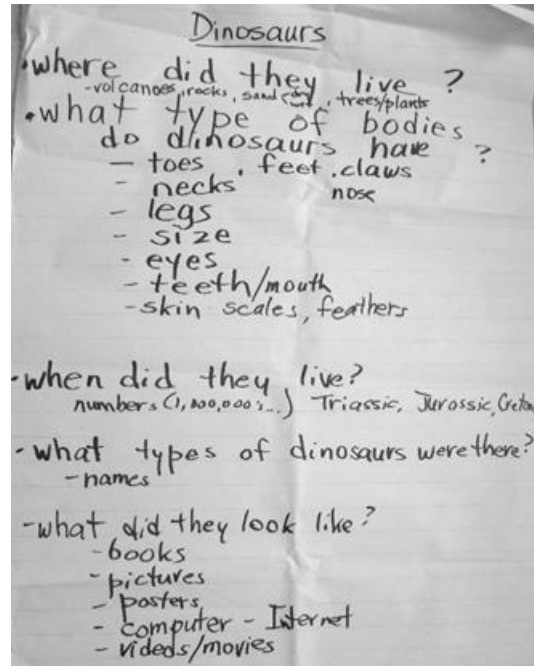 Dinosaurs
•where did they live?
-volcanoes, rocks, sand, trees/plants
•what type of bodies
do dinosaurs have ?
- toes, feet, claws
- necks nose
- legs
- size
- eyes
- teeth/mouth
-skin scales, feathers
-when did they live?
numbers (1,000,000's...) Triassic, Jurossic,
-what types of dinosaurs were there?
-names
-what did they look like?
-books
-pictures
- posters
- computer - Internet
- videos/movies